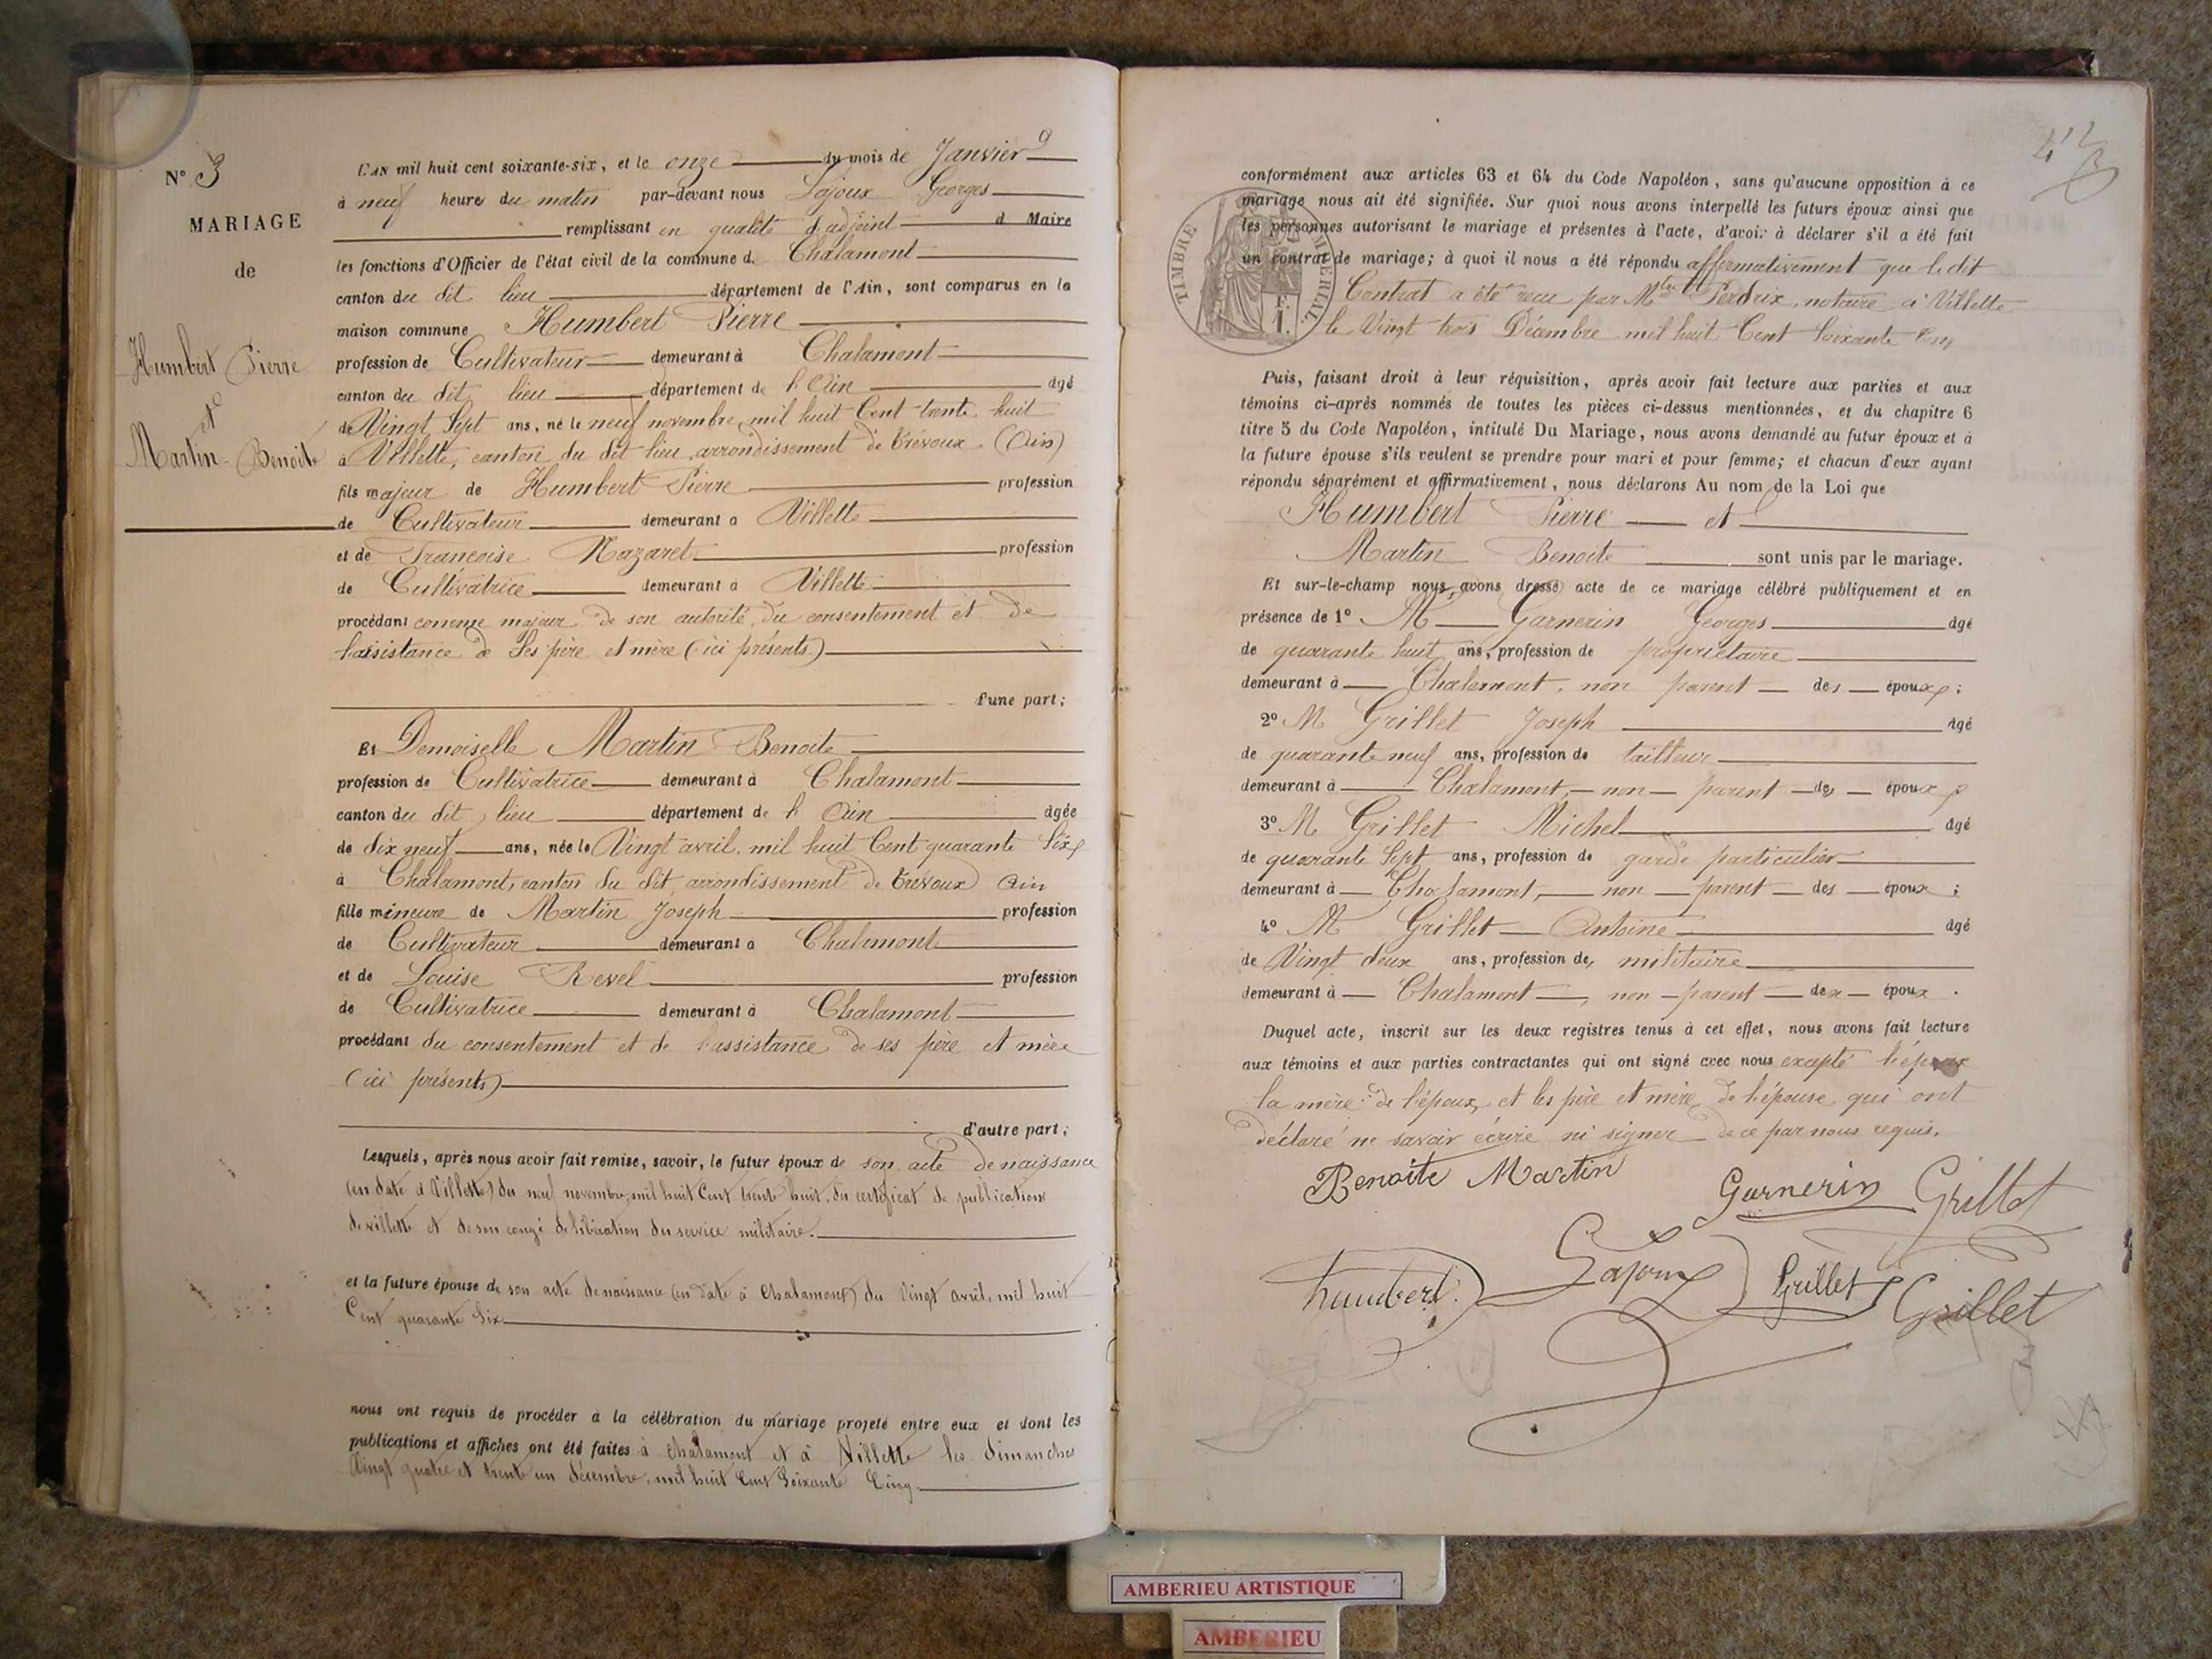 N° 3
MARIAGE
de
Humbert Pierre
et
Martin Benoite
9
L'AN mil huit cent soixante-six, et le onze du mois de Janvier
à neuf heure du matin par-devant nous Lajoux Georges
remplissant en qualité d'adjoint d Maire
les fonctions d'Officier de l'état civil de la commune d. Chalamont
canton du dit lieu département de l'Ain, sont comparus en la
maison commune Humbert Pierre
profession de Cultivateur demeurant à Chalamont
canton du dit lieu département de l'Ain âgé
de Vingt Sept ans, né le neuf novembre mil huit Cent trente huit
à Villette, canton du dit lieu arrondissement de Trévoux (Ain)
fils majeur de Humbert Pierre profession
de Cultivateur demeurant à Villette
et de Françoise Nazaret profession
de Cultivatrice demeurant à Villette
procédant comme majeur de son autorité, du consentement et de
l'assistance de Ses père et mère (ici présents)
l'une part;
Et Demoiselle Martin Benoite
profession de Cultivatrice demeurant à Chalamont
canton du dit lieu département de l'Ain âgée
de dix neuf ans, née le Vingt avril mil huit Cent quarante Six
à Chalamont, canton du dit arrondissement de Trévoux Ain
fille mineure de Martin Joseph profession
de Cultivateur demeurant à Chalamont
et de Louise Revel profession
de Cultivatrice demeurant à Chalamont
procédant du consentement et de l'assistance de ses père et mère
(ici présents)
d'autre part;
Lesquels, après nous avoir fait remise, savoir, le futur époux de son acte de naissance
(en date à Villette) du neuf novembre mil huit Cent trente huit, du certificat de publication
de villette et de son congé de libération du service militaire.
et la future épouse de son acte de naissance (en date à Chalamont) du Vingt avril mil huit
Cent quarante Six
nous ont requis de procéder à la célébration du mariage projeté entre eux et dont les
publications et affiches ont été faites à Chalamont et à Villette les dimanches
Vingt quatre et trente un décembre, mil huit Cent Soixante Cinq.
conformément aux articles 63 et 64 du Code Napoléon, sans qu'aucune opposition à ce
mariage nous ait été signifiée. Sur quoi nous avons interpellé les futurs époux ainsi que
les personnes autorisant le mariage et présentes à l'acte, d'avoir à déclarer s'il a été fait
un contrat de mariage; à quoi il nous a été répondu affirmativement que le dit
Contrat a été recu par Mtre Perdrix, notaire à Villette
le Vingt trois Décembre mil huit Cent Soixante Cinq
TIMBRE IMPERIAL
1 F.
Puis, faisant droit à leur réquisition, après avoir fait lecture aux parties et aux
témoins ci-après nommés de toutes les pièces ci-dessus mentionnées, et du chapitre 6
titre 5 du Code Napoléon, intitulé Du Mariage, nous avons demandé au futur époux et à
la future épouse s'ils veulent se prendre pour mari et pour femme; et chacun d'eux ayant
répondu séparément et affirmativement, nous déclarons Au nom de la Loi que
Humbert Pierre et
Martin Benoite sont unis par le mariage.
Et sur-le-champ nous avons dressé acte de ce mariage célébré publiquement et en
présence de 1° M Garnerin Georges âgé
de quarante huit ans, profession de propriétaire
demeurant à Chalamont, non parent des époux;
2° M Grillet Joseph âgé
de quarante neuf ans, profession de tailleur
demeurant à Chalamont, non parent des époux
3° M Grillet Michel âgé
de quarante Sept ans, profession de garde particulier
demeurant à Chalamont, non parent des époux;
4° M Grillet Antoine âgé
de Vingt deux ans, profession de militaire
demeurant à Chalamont, non parent des époux.
Duquel acte, inscrit sur les deux registres tenus à cet effet, nous avons fait lecture
aux témoins et aux parties contractantes qui ont signé avec nous excepté l'époux
la mère de l'époux, et les père et mère de l'épouse qui ont
déclaré ne savoir écrire ni signer de ce par nous requis.
Benoite Martin
Garnerin Grillet
humbert Lajoux Grillet Grillet
AMBERIEU ARTISTIQUE
AMBERIEU